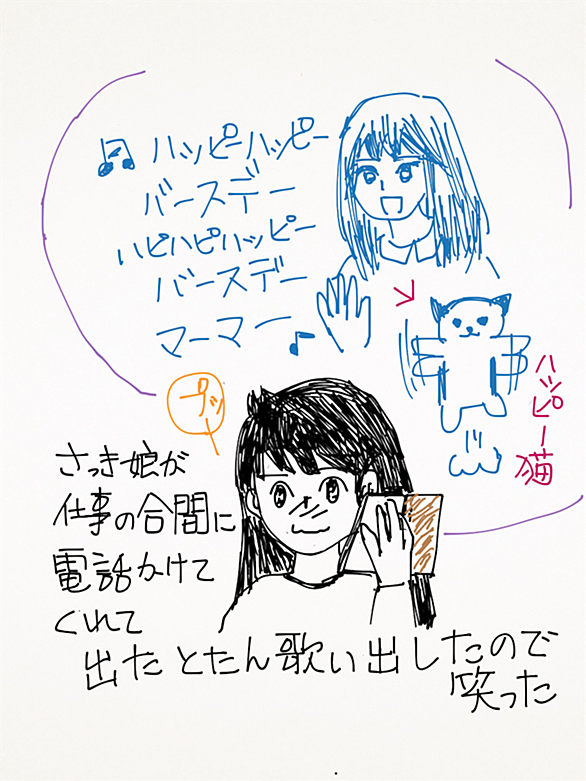 ♫ ハッピーハッピー
バースデー
ハピハピハッピー
バースデー
マーマー♪
ハッピー猫
プッ
さっき娘が
仕事の合間に
電話かけて
くれて
出たとたん歌い出したので
笑った